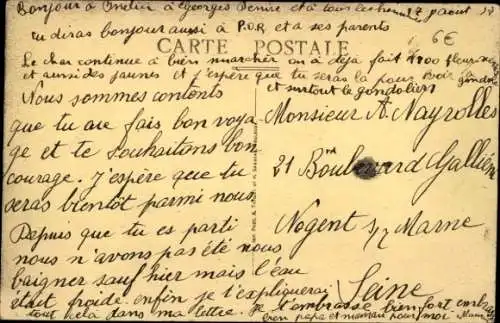 Bonjour à à Georges Denise et à tous 17 Août
tu diras bonjour aussi à P.O.R et a ses parents
6€
CARTE POSTALE
Le char continue à bien marcher on a déjà fait fleurs
et aussi des jaunes et j'espère que tu seras là pour voir la gondole
et surtout le gondolier
Nous sommes contents
que tu aie fais bon voya-
ge et te souhaitons bon
courage. J'espère que tu
seras bientôt parmi nous
Depuis que tu es parti
nous n'avons pas été nous
baigner sauf hier mais l'eau
était froide. enfin je t'expliquerai
tout cela dans ma lettre. Je t'embrasse bien fort
bien papa et maman pour moi
Monsieur A. Nayrolles
21 Boulevard Galliéni
Nogent s/ Marne
Seine